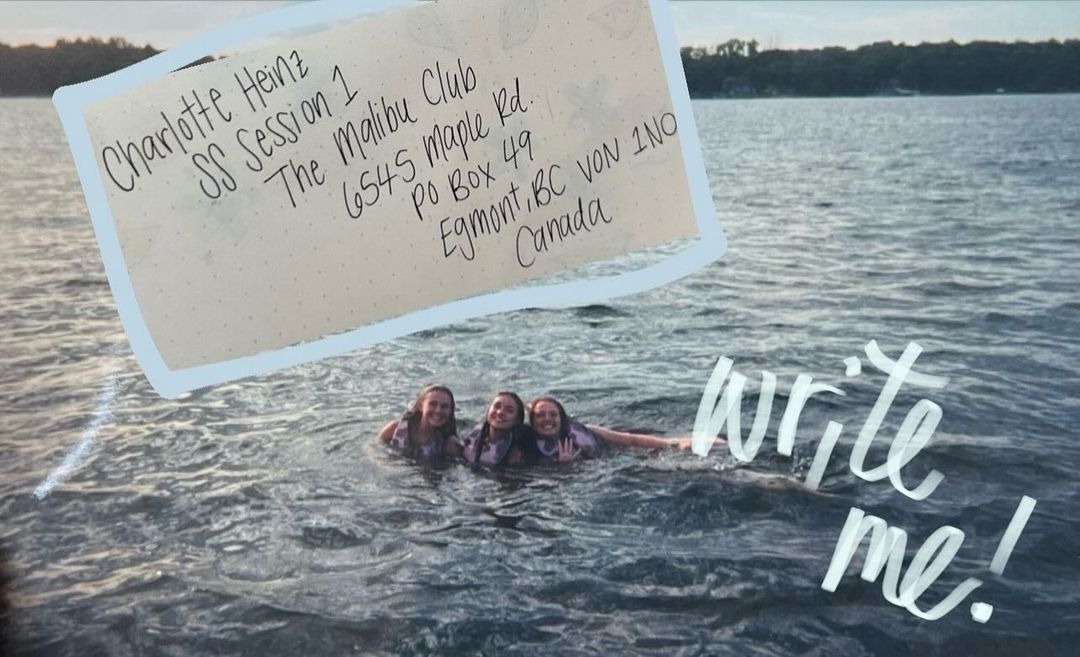 Charlotte Heinz
SS Session 1
The Malibu Club
6545 Maple Rd.
PO Box 49
Egmont, BC V0N 1N0
Canada
write
me!